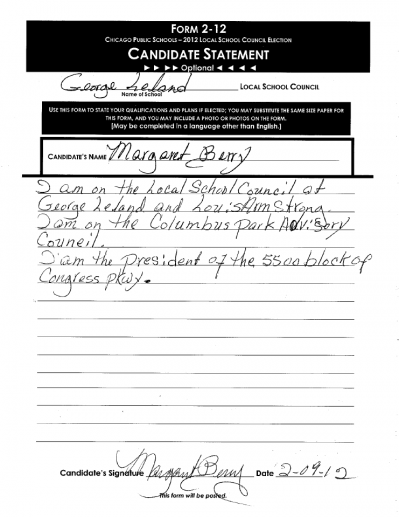 FORM 2-12
CHICAGO PUBLIC SCHOOLS – 2012 LOCAL SCHOOL COUNCIL ELECTION
CANDIDATE STATEMENT
►►►► Optional ◄◄◄◄
George Leland LOCAL SCHOOL COUNCIL
Name of School
USE THIS FORM TO STATE YOUR QUALIFICATIONS AND PLANS IF ELECTED; YOU MAY SUBSTITUTE THE SAME SIZE PAPER FOR
THIS FORM, AND YOU MAY INCLUDE A PHOTO OR PHOTOS ON THE FORM.
(May be completed in a language other than English.)
CANDIDATE'S NAME Margaret Berry
I am on the Local School Council at
George Leland and Louis Armstrong.
I am on the Columbus Park Advisory
Council.
I am the President of the 5500 block of
Congress pkwy.
Candidate's Signature Margaret Berry Date 2-09-12
This form will be posted.